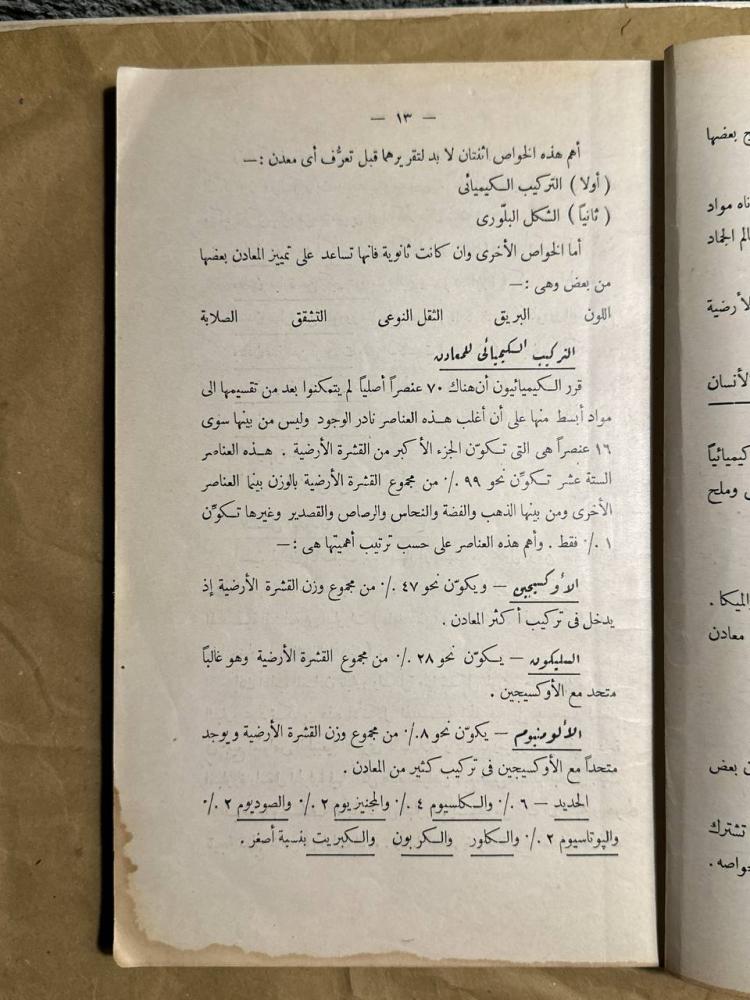 — ١٣ —
أهم هذه الخواص اثنتان لا بد لتقريرهما قبل تعرُّف أى معدن :—
( أولا ) التركيب الكيميائى
( ثانياً ) الشكل البلّورى
أما الخواص الأخرى وان كانت ثانوية فانها تساعد على تمييز المعادن بعضها
من بعض وهى :—
اللون البريق الثقل النوعى التشقق الصلابة
التركيب الكيميائى للمعادن
قرر الكيميائيون أن هناك ٧٠ عنصراً أصلياً لم يتمكنوا بعد من تقسيمها الى
مواد أبسط منها على أن أغلب هذه العناصر نادر الوجود وليس من بينها سوى
١٦ عنصراً هى التى تكوّن الجزء الأكبر من القشرة الأرضية . هذه العناصر
الستة عشر تكوِّن نحو ٩٩ ٪ من مجموع القشرة الأرضية بالوزن بينما العناصر
الأخرى ومن بينها الذهب والفضة والنحاس والرصاص والقصدير وغيرها تكوِّن
١ ٪ فقط . وأهم هذه العناصر على حسب ترتيب أهميتها هى :—
الأوكسيجين — ويكوّن نحو ٤٧ ٪ من مجموع وزن القشرة الأرضية إذ
يدخل فى تركيب أكثر المعادن .
السليكون — يكوّن نحو ٢٨ ٪ من مجموع القشرة الأرضية وهو غالباً
متحد مع الأوكسيجين .
الألومنيوم — يكوّن نحو ٨ ٪ من مجموع وزن القشرة الأرضية ويوجد
متحداً مع الأوكسيجين فى تركيب كثير من المعادن .
الحديد — ٦ ٪ والكلسيوم ٤ ٪ والمجنيزيوم ٢ ٪ والصوديوم ٢ ٪
والپوتاسيوم ٢ ٪ والكلور والكربون والكبريت بنسبة أصغر .
بعضها
مواد
الجماد
الأنسان
كيميائياً
وملح
الميكا .
معادن
بعض
تشترك